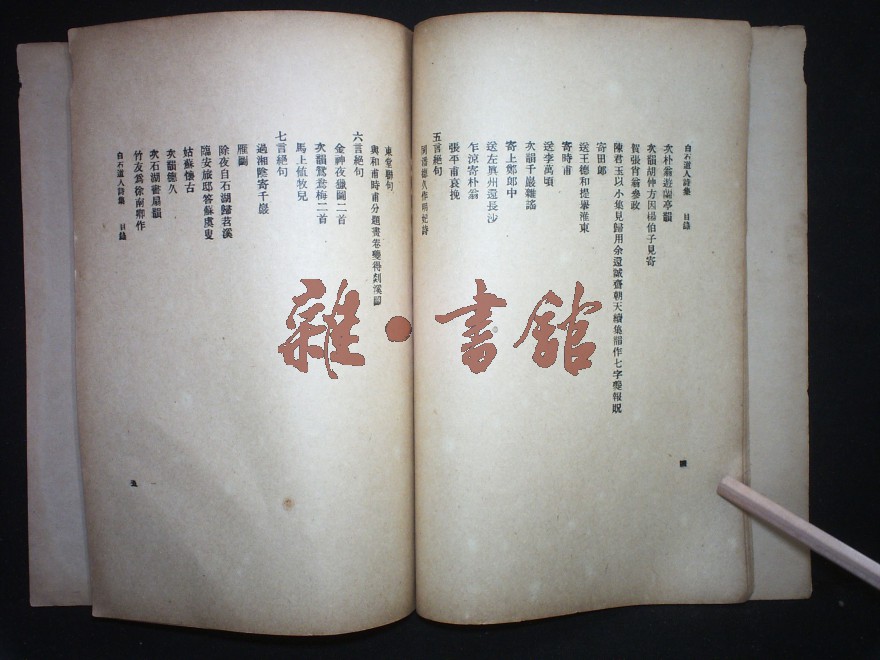 白石道人詩集 目錄
次朴翁遊蘭亭韻
次韻胡仲方因楊伯子見寄
賀張肖翁參政
陳君玉以小集見歸用余還誠齋朝天續集韻作七字報貺
寄田郎
送王德和提舉淮東
寄時甫
送李萬頃
次韻千巖雜謠
寄上鄭郎中
送左真州還長沙
乍涼寄朴翁
張平甫哀挽
五言絕句
同潘德久作明妃詩
四
東堂聯句
與和甫時甫分題畫卷得剡溪圖
六言絕句
金神夜獵圖二首
次韻鴛鴦梅二首
馬上值牧兒
七言絕句
過湘陰寄千巖
雁圖
除夜自石湖歸苕溪
臨安旅邸答蘇虞叟
姑蘇懷古
次韻德久
次石湖書扇韻
竹友為徐南卿作
白石道人詩集 目錄
五
雜·書館